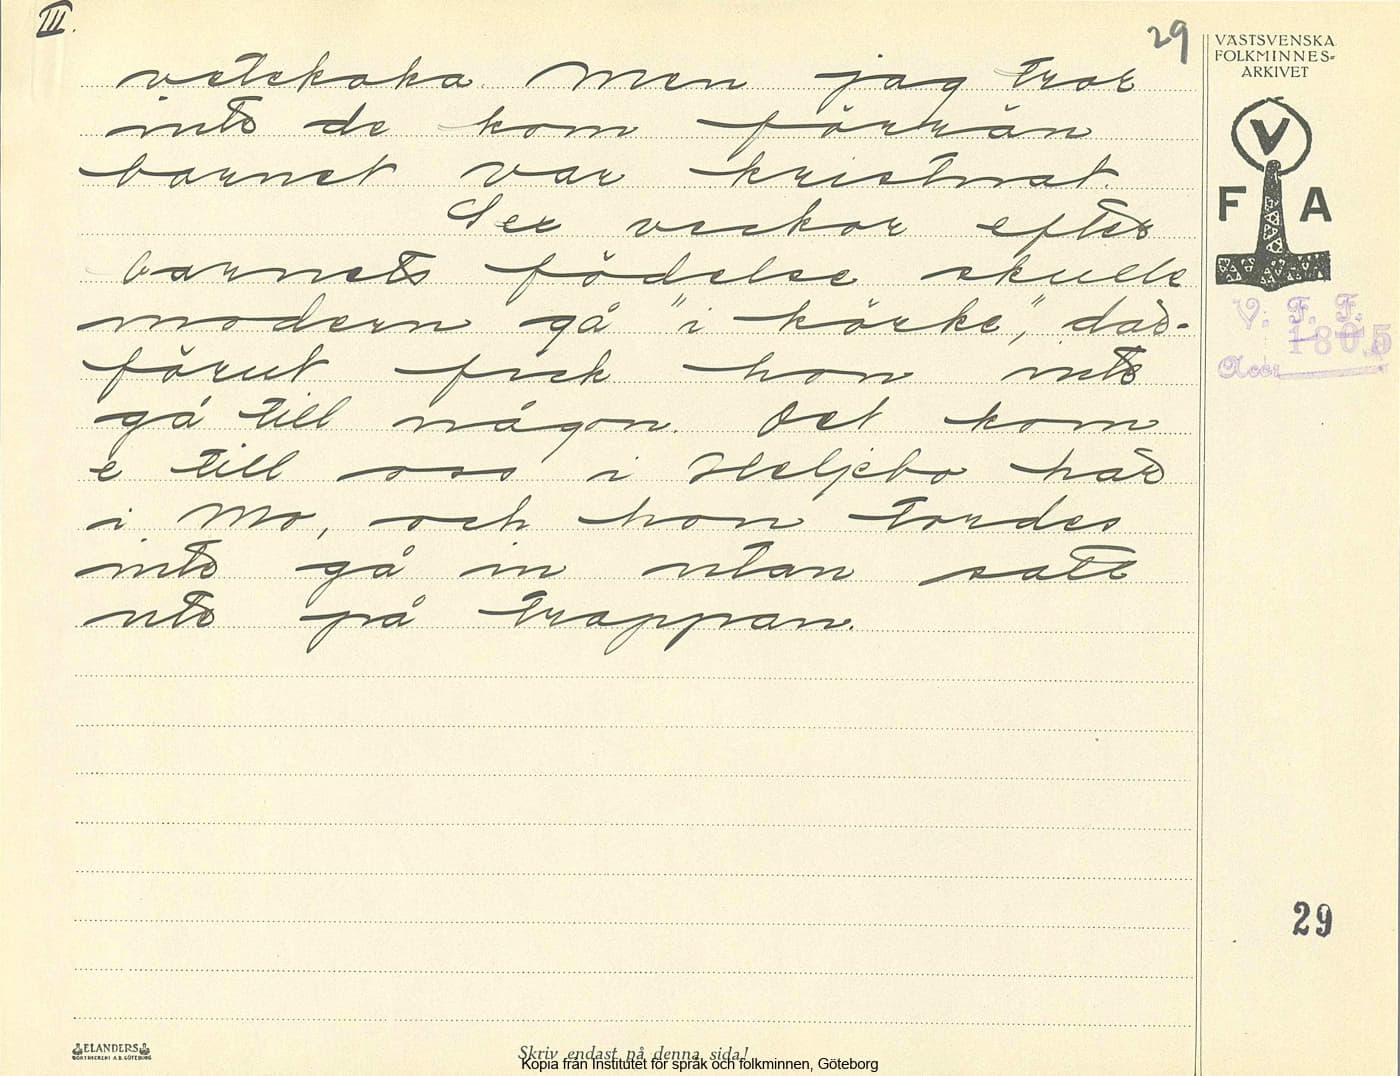 III.
29
VÄSTSVENSKA
FOLKMINNES-
ARKIVET
V
F A
V. F. F.
1805
Acc.
vetekaka. Men jag tror
inte de kom förrän
barnet var kristnat.
Sex veckor efter
barnets födelse skulle
modern gå "i körke", där-
förut fick hon inte
gå till någon. Det kom
e till oss i Heljebo här
i Mo, och hon tordes
inte gå in utan satt
ute på trappan.
29
ELANDERS
BOKTRYCKERI A.B. GÖTEBORG
Skriv endast på denna sida!
Kopia från Institutet för språk och folkminnen, Göteborg